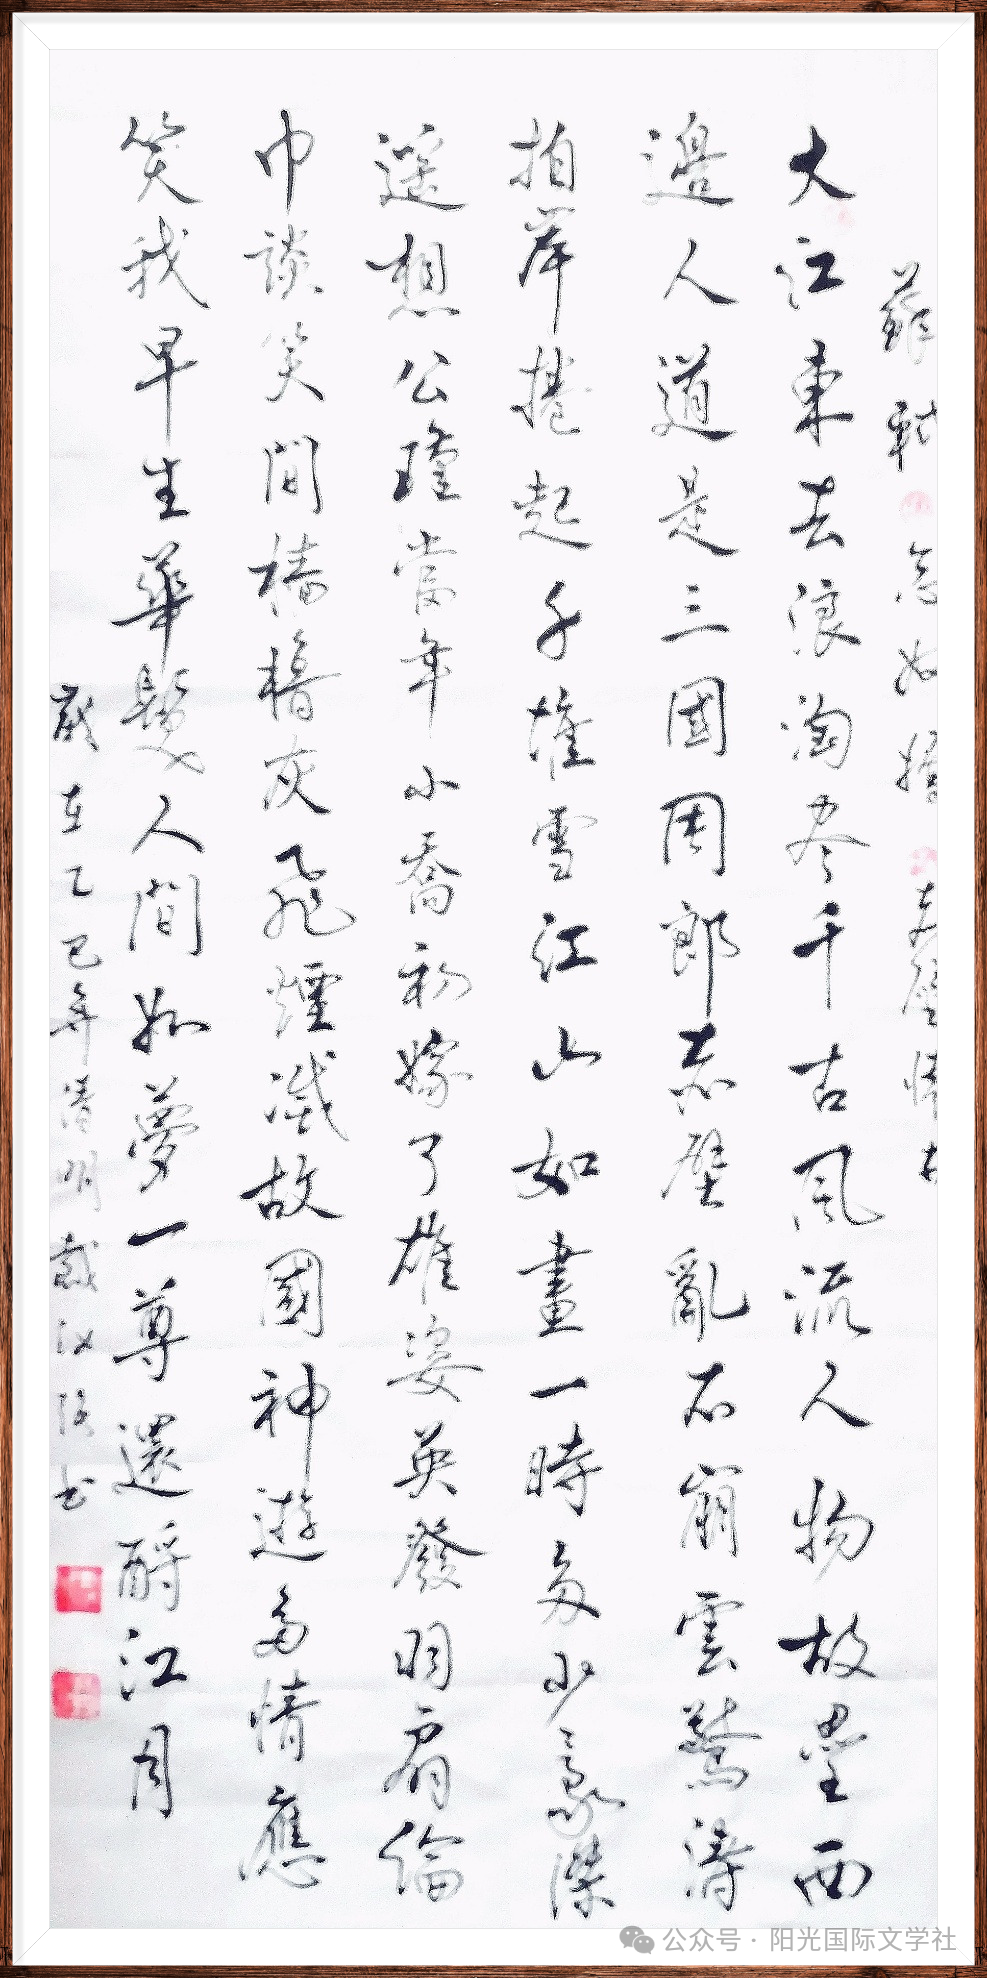 蘇軾 念奴嬌 赤壁懷古
大江東去浪淘尽千古風流人物故壘西
邊人道是三國周郎赤壁亂石崩雲驚濤
拍岸捲起千堆雪江山如畫一時多少豪傑
遥想公瑾當年小喬初嫁了雄姿英發羽扇綸
巾談笑間檣櫓灰飛煙滅故國神遊多情應
笑我早生華髮人間如夢一尊還酹江月
歲在乙巳年清明戴汉書
公众号·阳光国际文学社